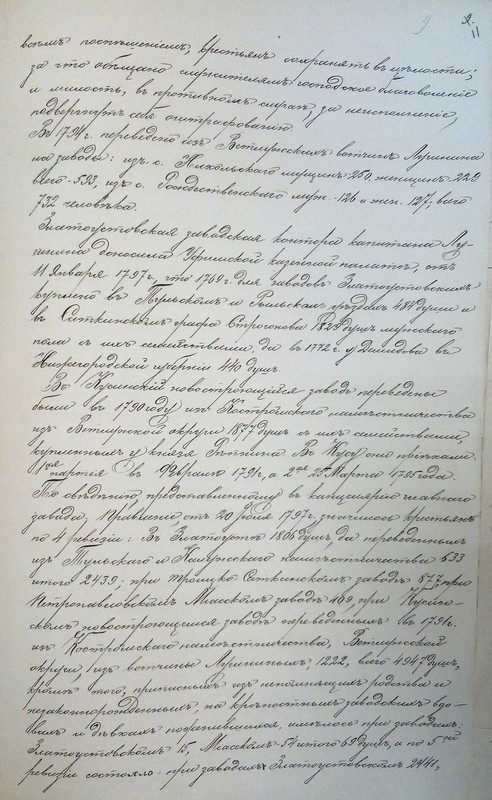 9 11
всѣмъ поспѣшеніемъ, крестьянъ сохранять въ цѣлости;
за что обѣщано служителямъ господское благоволеніе
и милость, въ противномъ случаѣ, за неисполненіе,
подвергнутъ себя оштрафованію.
Въ 1794 г. переведено изъ Ветлужскихъ вотчинъ Лугинина
на заводы: изъ с. Никольскаго мущинъ 250, женщинъ 229
всего
изъ с. Рождественскаго муж. 126 и жен. 127; всего
732 человѣка.
Златоустовская заводская контора капитана Лу-
гинина доносила Уфимской казенной палатѣ, отъ
11 Января 1797 г., что 1769 г. для заводовъ Златоустовскихъ
куплено въ Тульскомъ и уѣздахъ 484 души и
въ Саткинскомъ графа Строгонова 1828 душъ мужскаго
пола съ ихъ семействами, да въ 1772 г. у Демидова въ
Нижегородской губерніи 440 душъ.
Въ Кусинскій новостроющійся заводъ переведены
были въ 1790 году изъ Костромскаго намѣстничества
изъ Ветлужской округи 1877 душъ съ ихъ семействами,
купленныхъ у князя Репнина. Въ Кусу они пріѣхали:
1ая партія въ Февралѣ 1791 г, а 2ая 25 Марта 1795 года.
По свѣдѣнію, представленному въ канцелярію главнаго
завода. Правленія, отъ 20 Іюля 1797 г, значилось крестьянъ
по 4 ревизіи: Въ Златоустѣ 1806 душъ, да переведенныхъ
изъ Тульскаго и Калужскаго намѣстничества 633
итого 2439; при Троицко Саткинскомъ заводѣ 877, при
Петропавловскомъ Міасскомъ заводѣ 409, при Кусин-
скомъ новостроющемся заводѣ переведенныхъ въ
изъ Костромскаго намѣстничества, Ветлужской
округи, изъ вотчины Лугининыхъ 1222, всего 4947 душъ,
кромѣ того, приписныхъ изъ непомнящихъ родства и
незаконнорожденныхъ, на крѣпостныхъ заводскихъ вдо-
вахъ и дѣвкахъ поженившихся, имѣлось при заводахъ:
Златоустовскомъ 15, Міасскомъ 54 итого 69 душъ, а по 5ой
ревизіи состояло: при заводахъ Златоустовскомъ 2441,